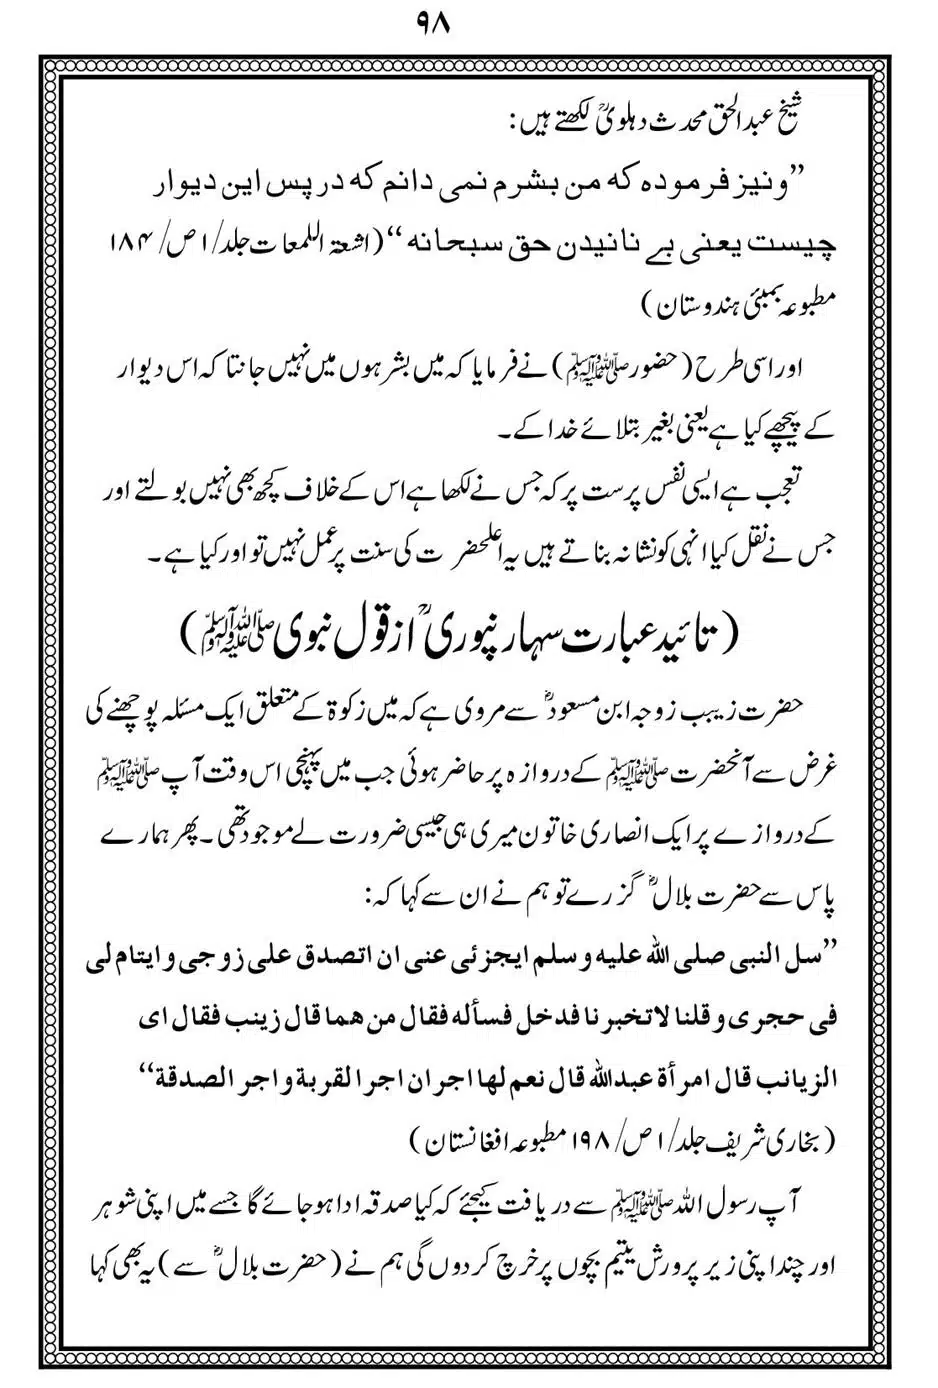 ۹۸
شیخ عبدالحق محدث دہلویؒ لکھتے ہیں:
”ونیز فرمودہ کہ من بشرم نمی دانم کہ در پس این دیوار
چیست یعنی بے نانیدن حق سبحانہ“ (اشعۃ اللمعات جلد/۱ ص/۱۸۴
مطبوعہ بمبئی ہندوستان)
اور اسی طرح (حضور ﷺ) نے فرمایا کہ میں بشر ہوں میں نہیں جانتا کہ اس دیوار
کے پیچھے کیا ہے یعنی بغیر بتلائے خدا کے۔
تعجب ہے ایسی نفس پرست پر کہ جس نے لکھا ہے اس کے خلاف کچھ بھی نہیں بولتے اور
جس نے نقل کیا انہی کو نشانہ بناتے ہیں یہ اعلحضرت کی سنت پر عمل نہیں تو اور کیا ہے۔
(تائید عبارت سہارنپوریؒ از قول نبوی ﷺ)
حضرت زیبب زوجہ ابن مسعودؓ سے مروی ہے کہ میں زکوۃ کے متعلق ایک مسئلہ پوچھنے کی
غرض سے آنحضرت ﷺ کے دروازہ پر حاضر ہوئی جب میں پہنچی اس وقت آپ ﷺ
کے دروازے پر ایک انصاری خاتون میری ہی جیسی ضرورت لے موجود تھی۔ پھر ہمارے
پاس سے حضرت بلالؓ گزرے تو ہم نے ان سے کہا کہ:
”سل النبی صلی اللہ علیہ وسلم ایجزئی عنی ان اتصدق علی زوجی وایتام لی
فی حجری وقلنا لاتخبرنا فدخل فسألہ فقال من ھما قال زینب فقال ای
الزیانب قال امرأۃ عبداللہ قال نعم لھا اجران اجر القربۃ واجر الصدقۃ“
(بخاری شریف جلد/۱ ص/۱۹۸ مطبوعہ افغانستان)
آپ رسول اللہ ﷺ سے دریافت کیجئے کہ کیا صدقہ ادا ہو جائے گا جسے میں اپنی شوہر
اور چند اپنی زیر پرورش یتیم بچوں پر خرچ کر دوں گی ہم نے (حضرت بلالؓ سے) یہ بھی کہا